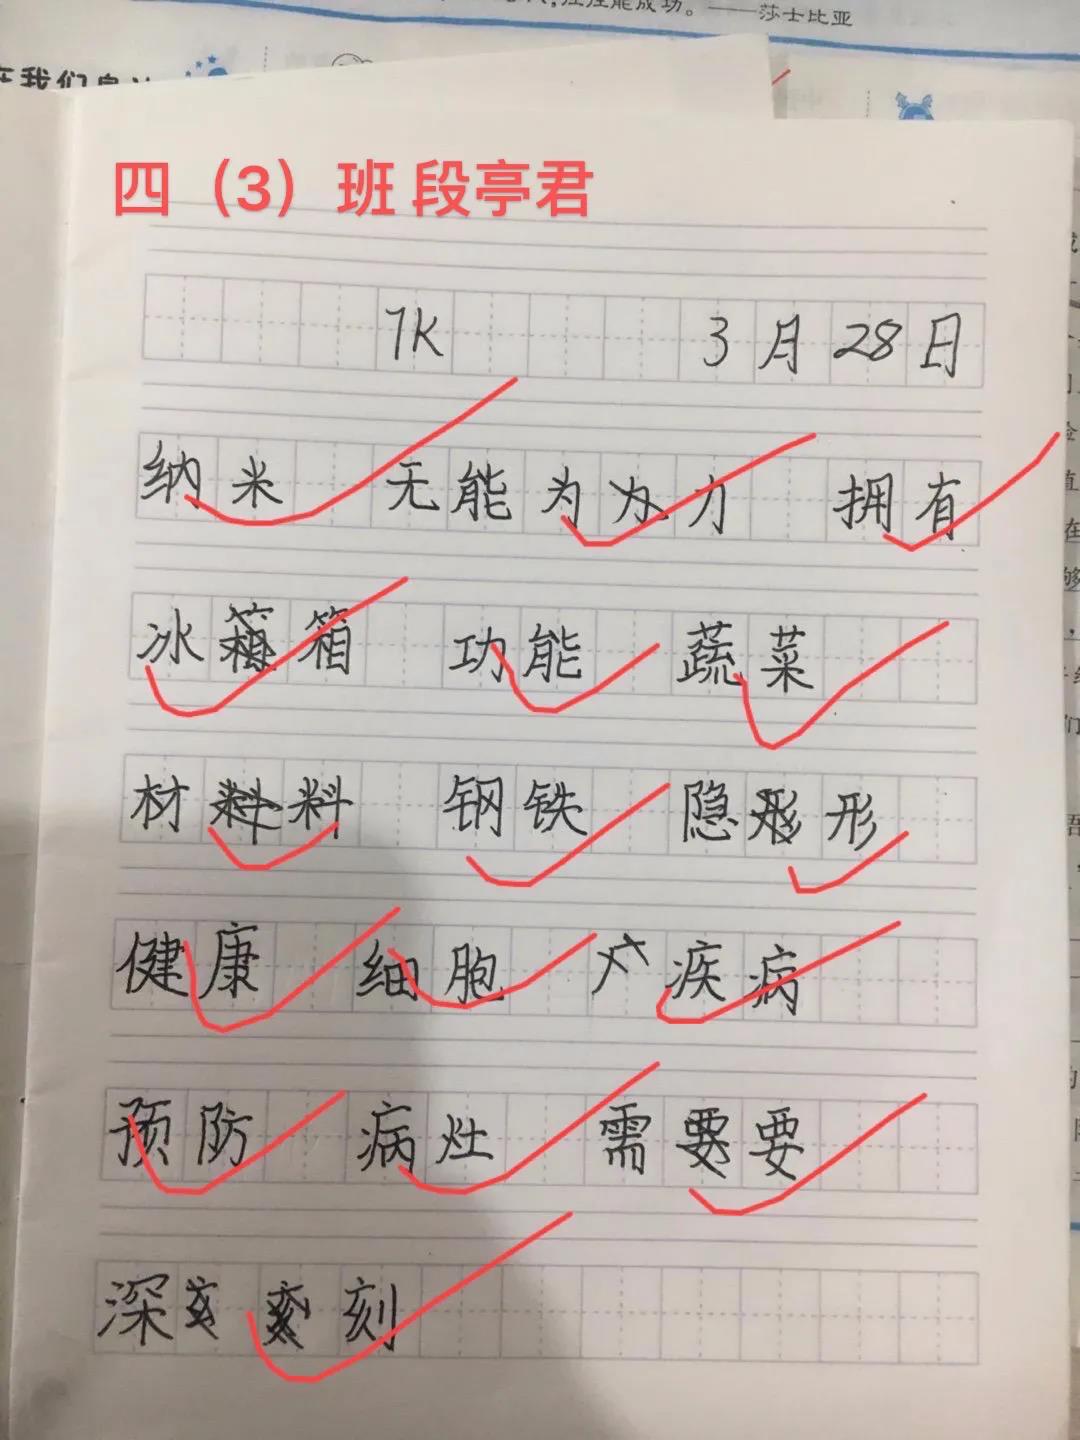 能成功。——莎士比亚
在我们身
四（3）班 段亭君
7K 3月28日
纳米 无能为力 拥有
冰箱 功能 蔬菜
材料 钢铁 隐形
健康 细胞 疾病
预防 病灶 需要
深刻